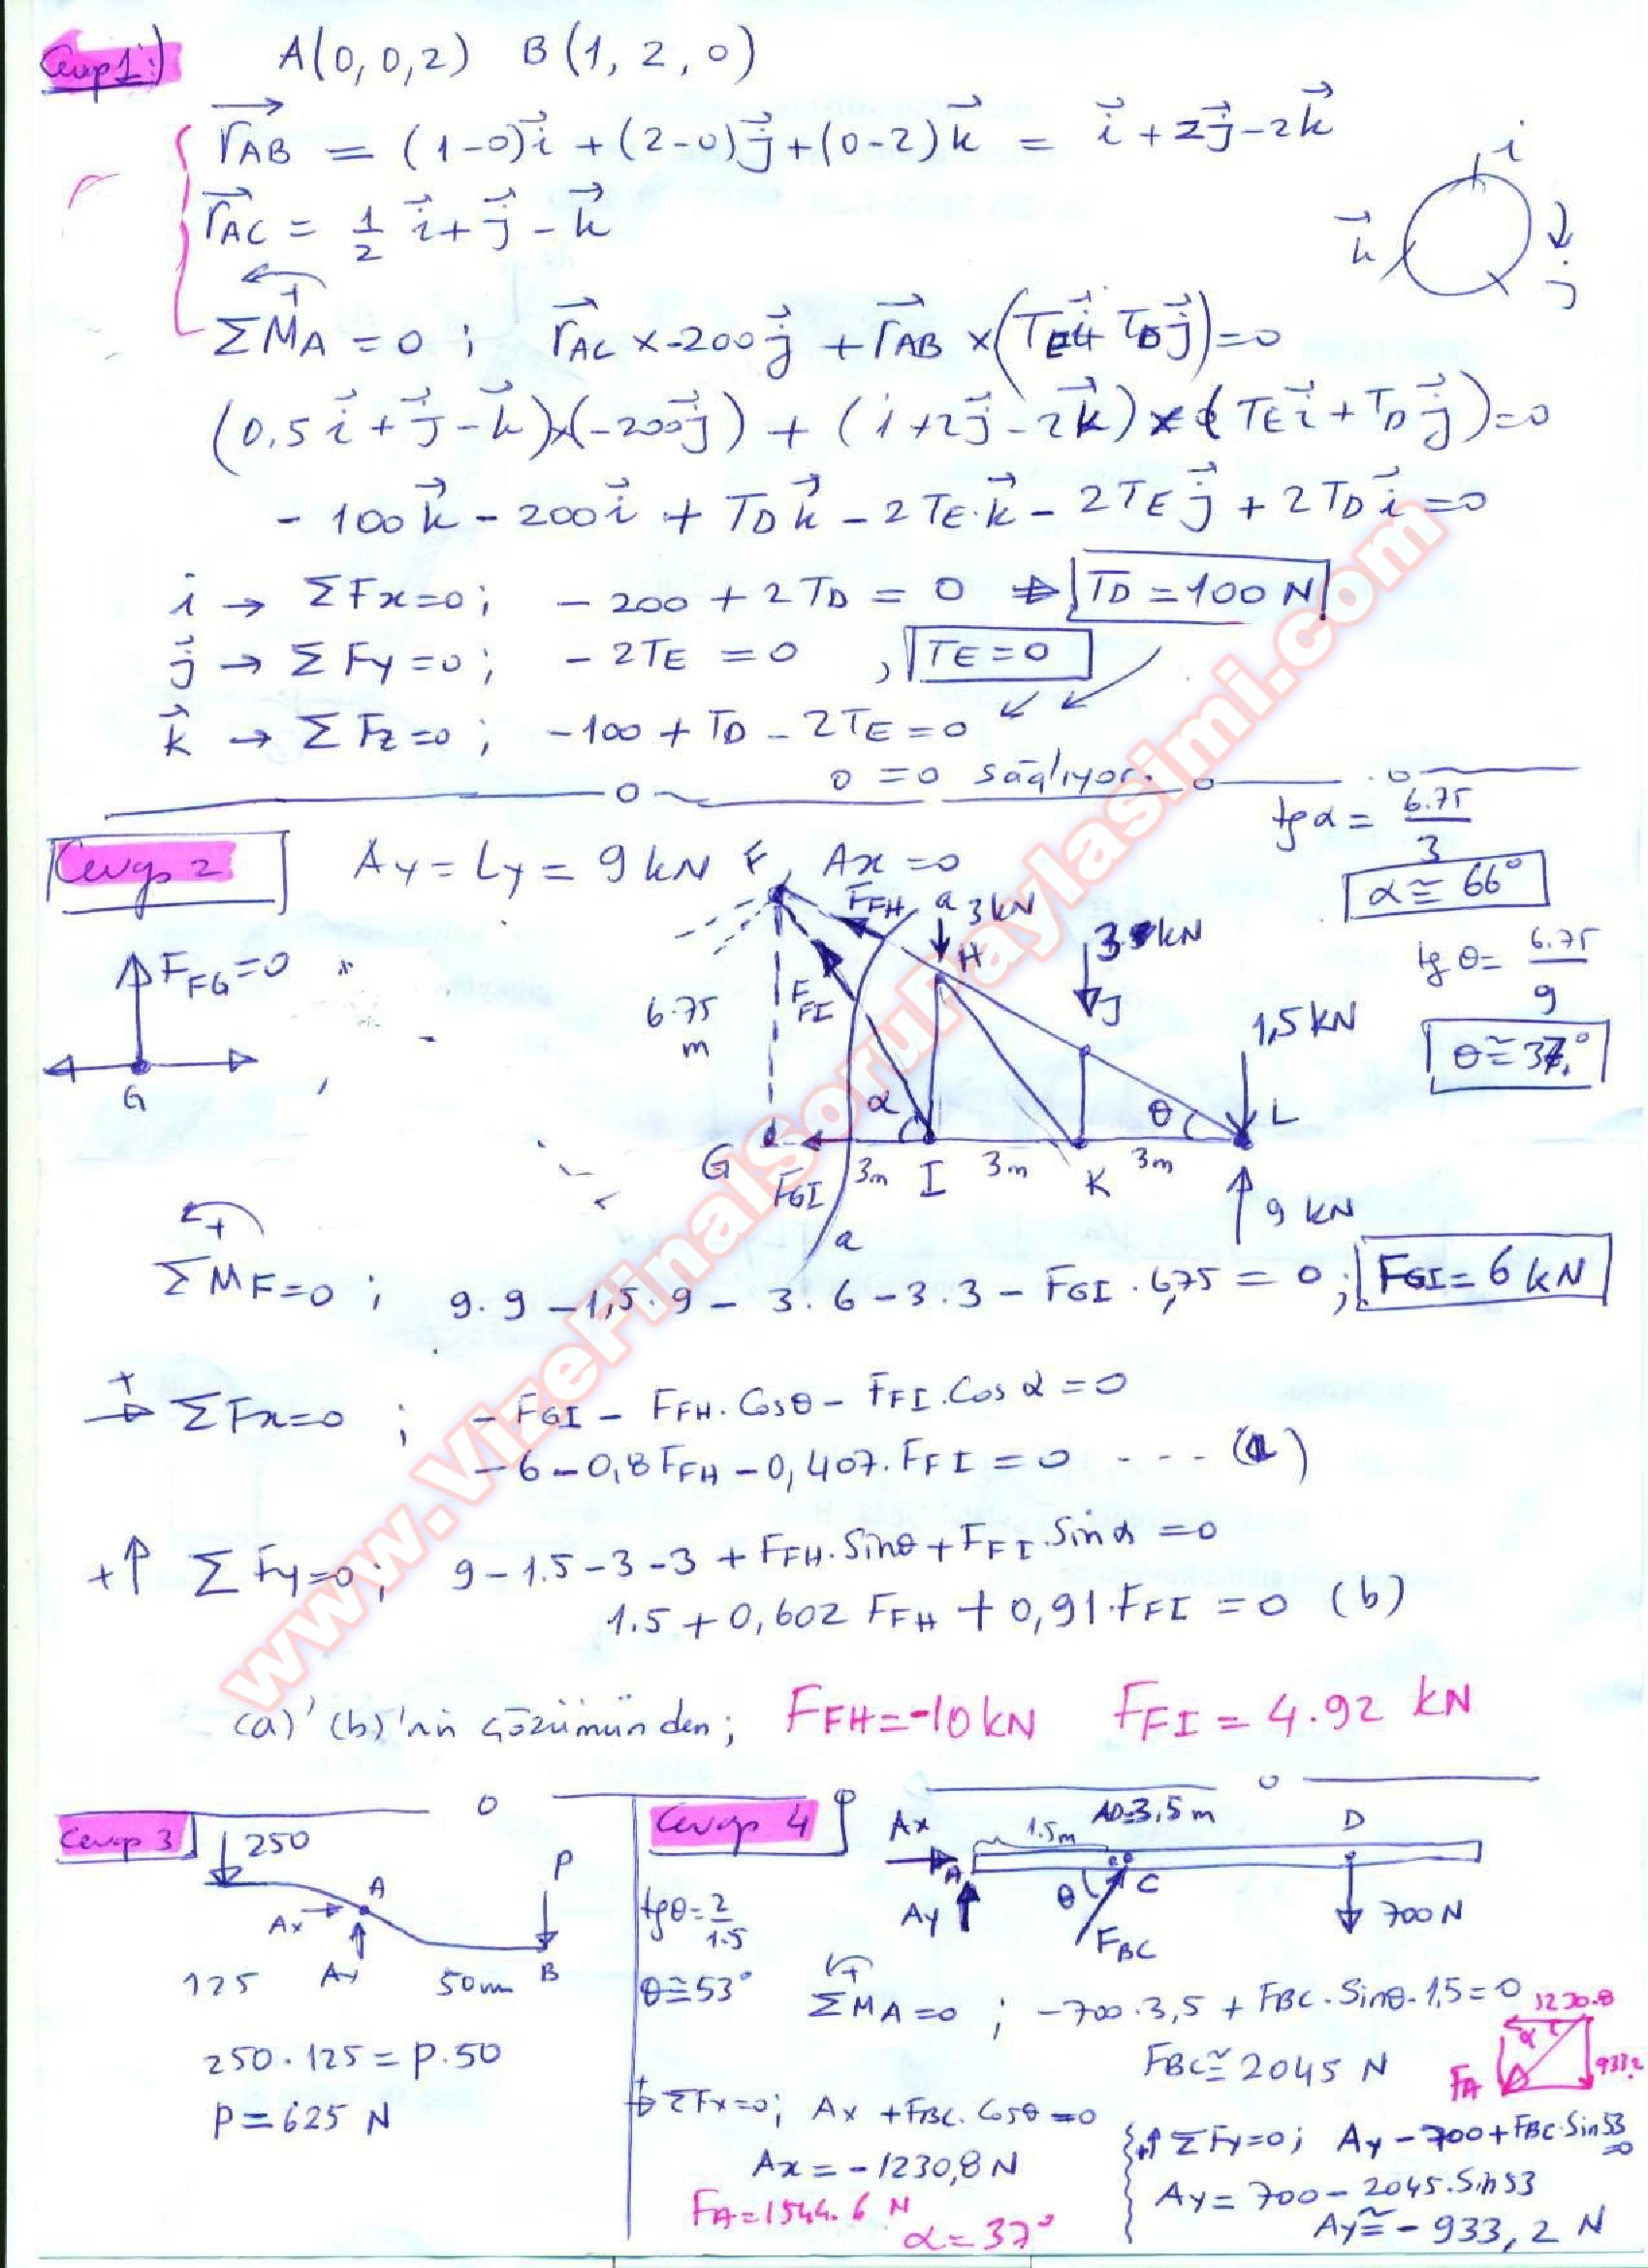 Cevap 1:) A(0,0,2) B(1,2,0)
rAB = (1-0)i + (2-0)j + (0-2)k = i + 2j - 2k
i
rAC = 1/2 i + j - k
k j
+
ΣMA = 0 ; rAC x -200j + rAB x (TEi + TDj) = 0
(0,5i + j - k)x(-200j) + (i + 2j - 2k) x (TEi + TDj) = 0
- 100k - 200i + TDk - 2TE.k - 2TEj + 2TDi = 0
i → ΣFx=0; - 200 + 2TD = 0 ⇒ TD = 100 N
j → ΣFy=0; - 2TE = 0 , TE = 0
k → ΣFz=0; -100 + TD - 2TE = 0
0 = 0 sağlıyor.
Cevap 2 Ay = Ly = 9 kN F, Ax = 0
tgα = 6.75/3
α ≅ 66°
tgθ = 6.75/9
θ ≅ 37°
FFG = 0
G
FFH a 3 kN
H
3 kN
J
FFI
6.75 m
1,5 kN
α θ L
G FGI 3m I 3m K 3m
9 kN
a
+
ΣMF=0 ; 9.9 - 1,5.9 - 3.6 - 3.3 - FGI.6,75 = 0 ; FGI = 6 kN
+ ΣFx=0 ; - FGI - FFH.Cosθ - FFI.Cosα = 0
- 6 - 0,8FFH - 0,407.FFI = 0 --- (a)
+↑ ΣFy=0; 9 - 1.5 - 3 - 3 + FFH.Sinθ + FFI.Sinα = 0
1.5 + 0,602 FFH + 0,91.FFI = 0 (b)
(a)' (b)'nin çözümünden; FFH = -10 kN FFI = 4.92 kN
Cevap 3
250
A P
Ax
125 Ay 50m B
250.125 = P.50
P = 625 N
Cevap 4
Ax 1.5m AD=3,5 m D
A
Ay θ C
FBC 700 N
tgθ = 2/1.5
θ ≅ 53°
+
ΣMA=0 ; -700.3,5 + FBC.Sinθ.1,5 = 0
FBC ≅ 2045 N
1230.8
α
FA 933.2
+ ΣFx=0; Ax + FBC.Cosθ = 0
Ax = - 1230,8 N
FA = 1544.6 N
α = 37°
+↑ ΣFy=0; Ay - 700 + FBC.Sin53 = 0
Ay = 700 - 2045.Sin53
Ay ≅ - 933,2 N
www.VizeFinalSoruPaylasimi.com